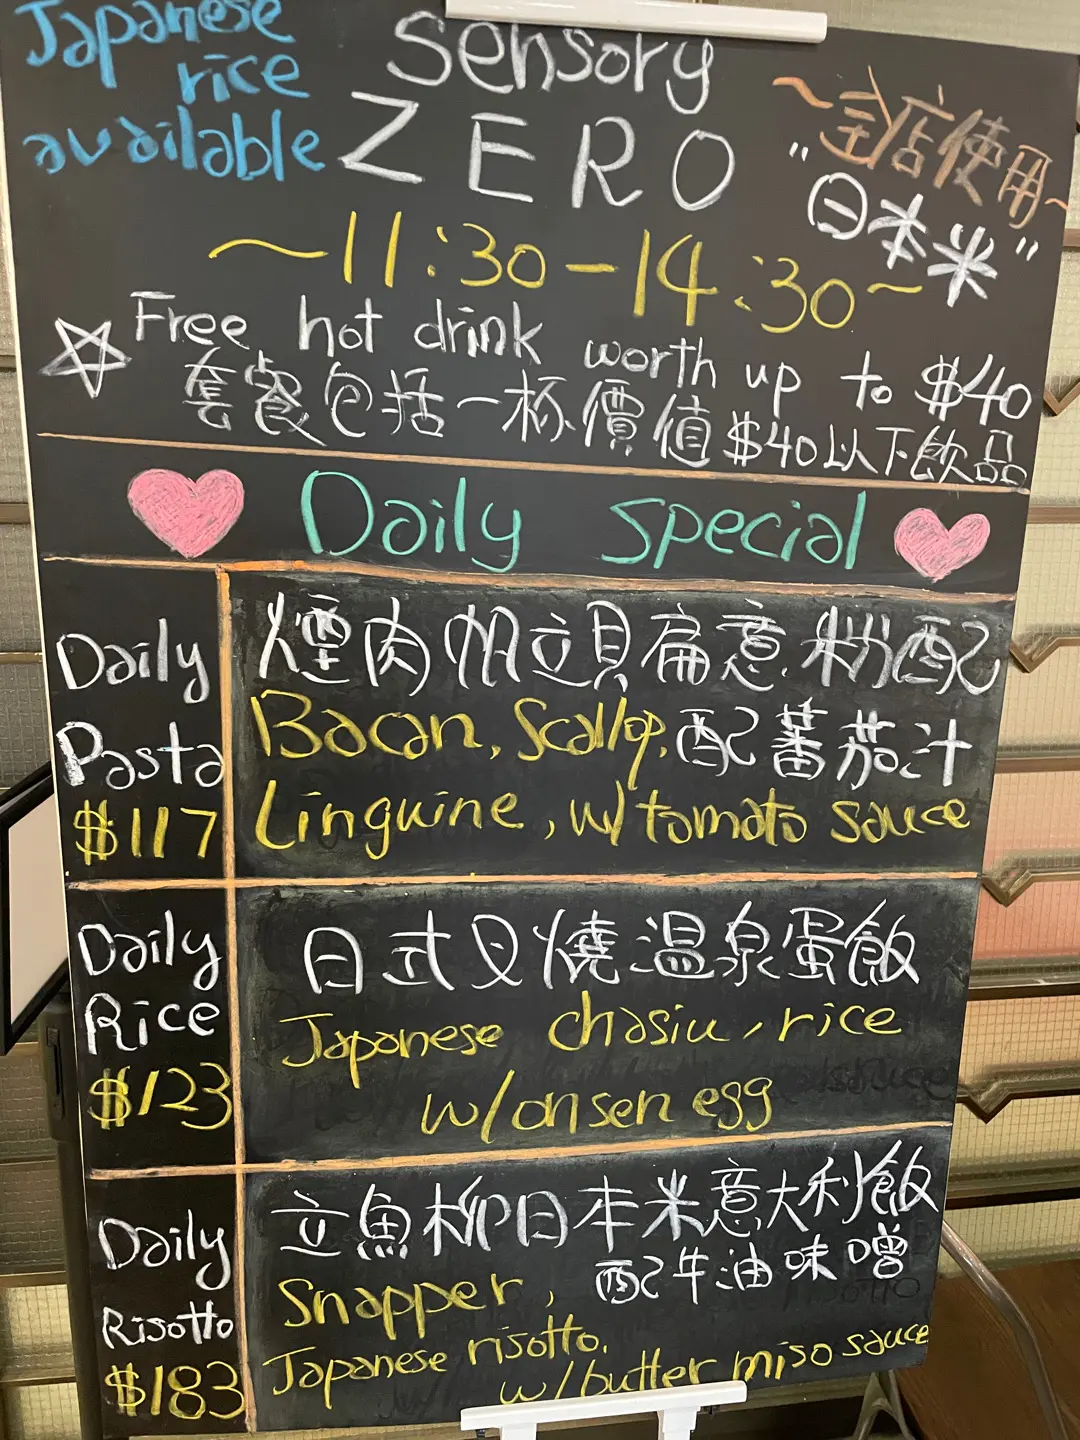 Japanese
rice
available
Sensory
ZERO
~全店使用~
"日本米"
~11:30-14:30~
Free hot drink worth up to $40
套餐包括一杯價值$40以下飲品
Daily Special
Daily
Pasta
$117
煙肉帆立貝扁意粉配
Bacon, Scallop, 配蕃茄汁
Linguine, w/ tomato sauce
Daily
Rice
$123
日式叉燒溫泉蛋飯
Japanese chasiu, rice
w/onsen egg
Daily
Risotto
$183
立魚柳日本米意大利飯
配牛油味噌
Snapper,
Japanese risotto.
w/butter miso sauce